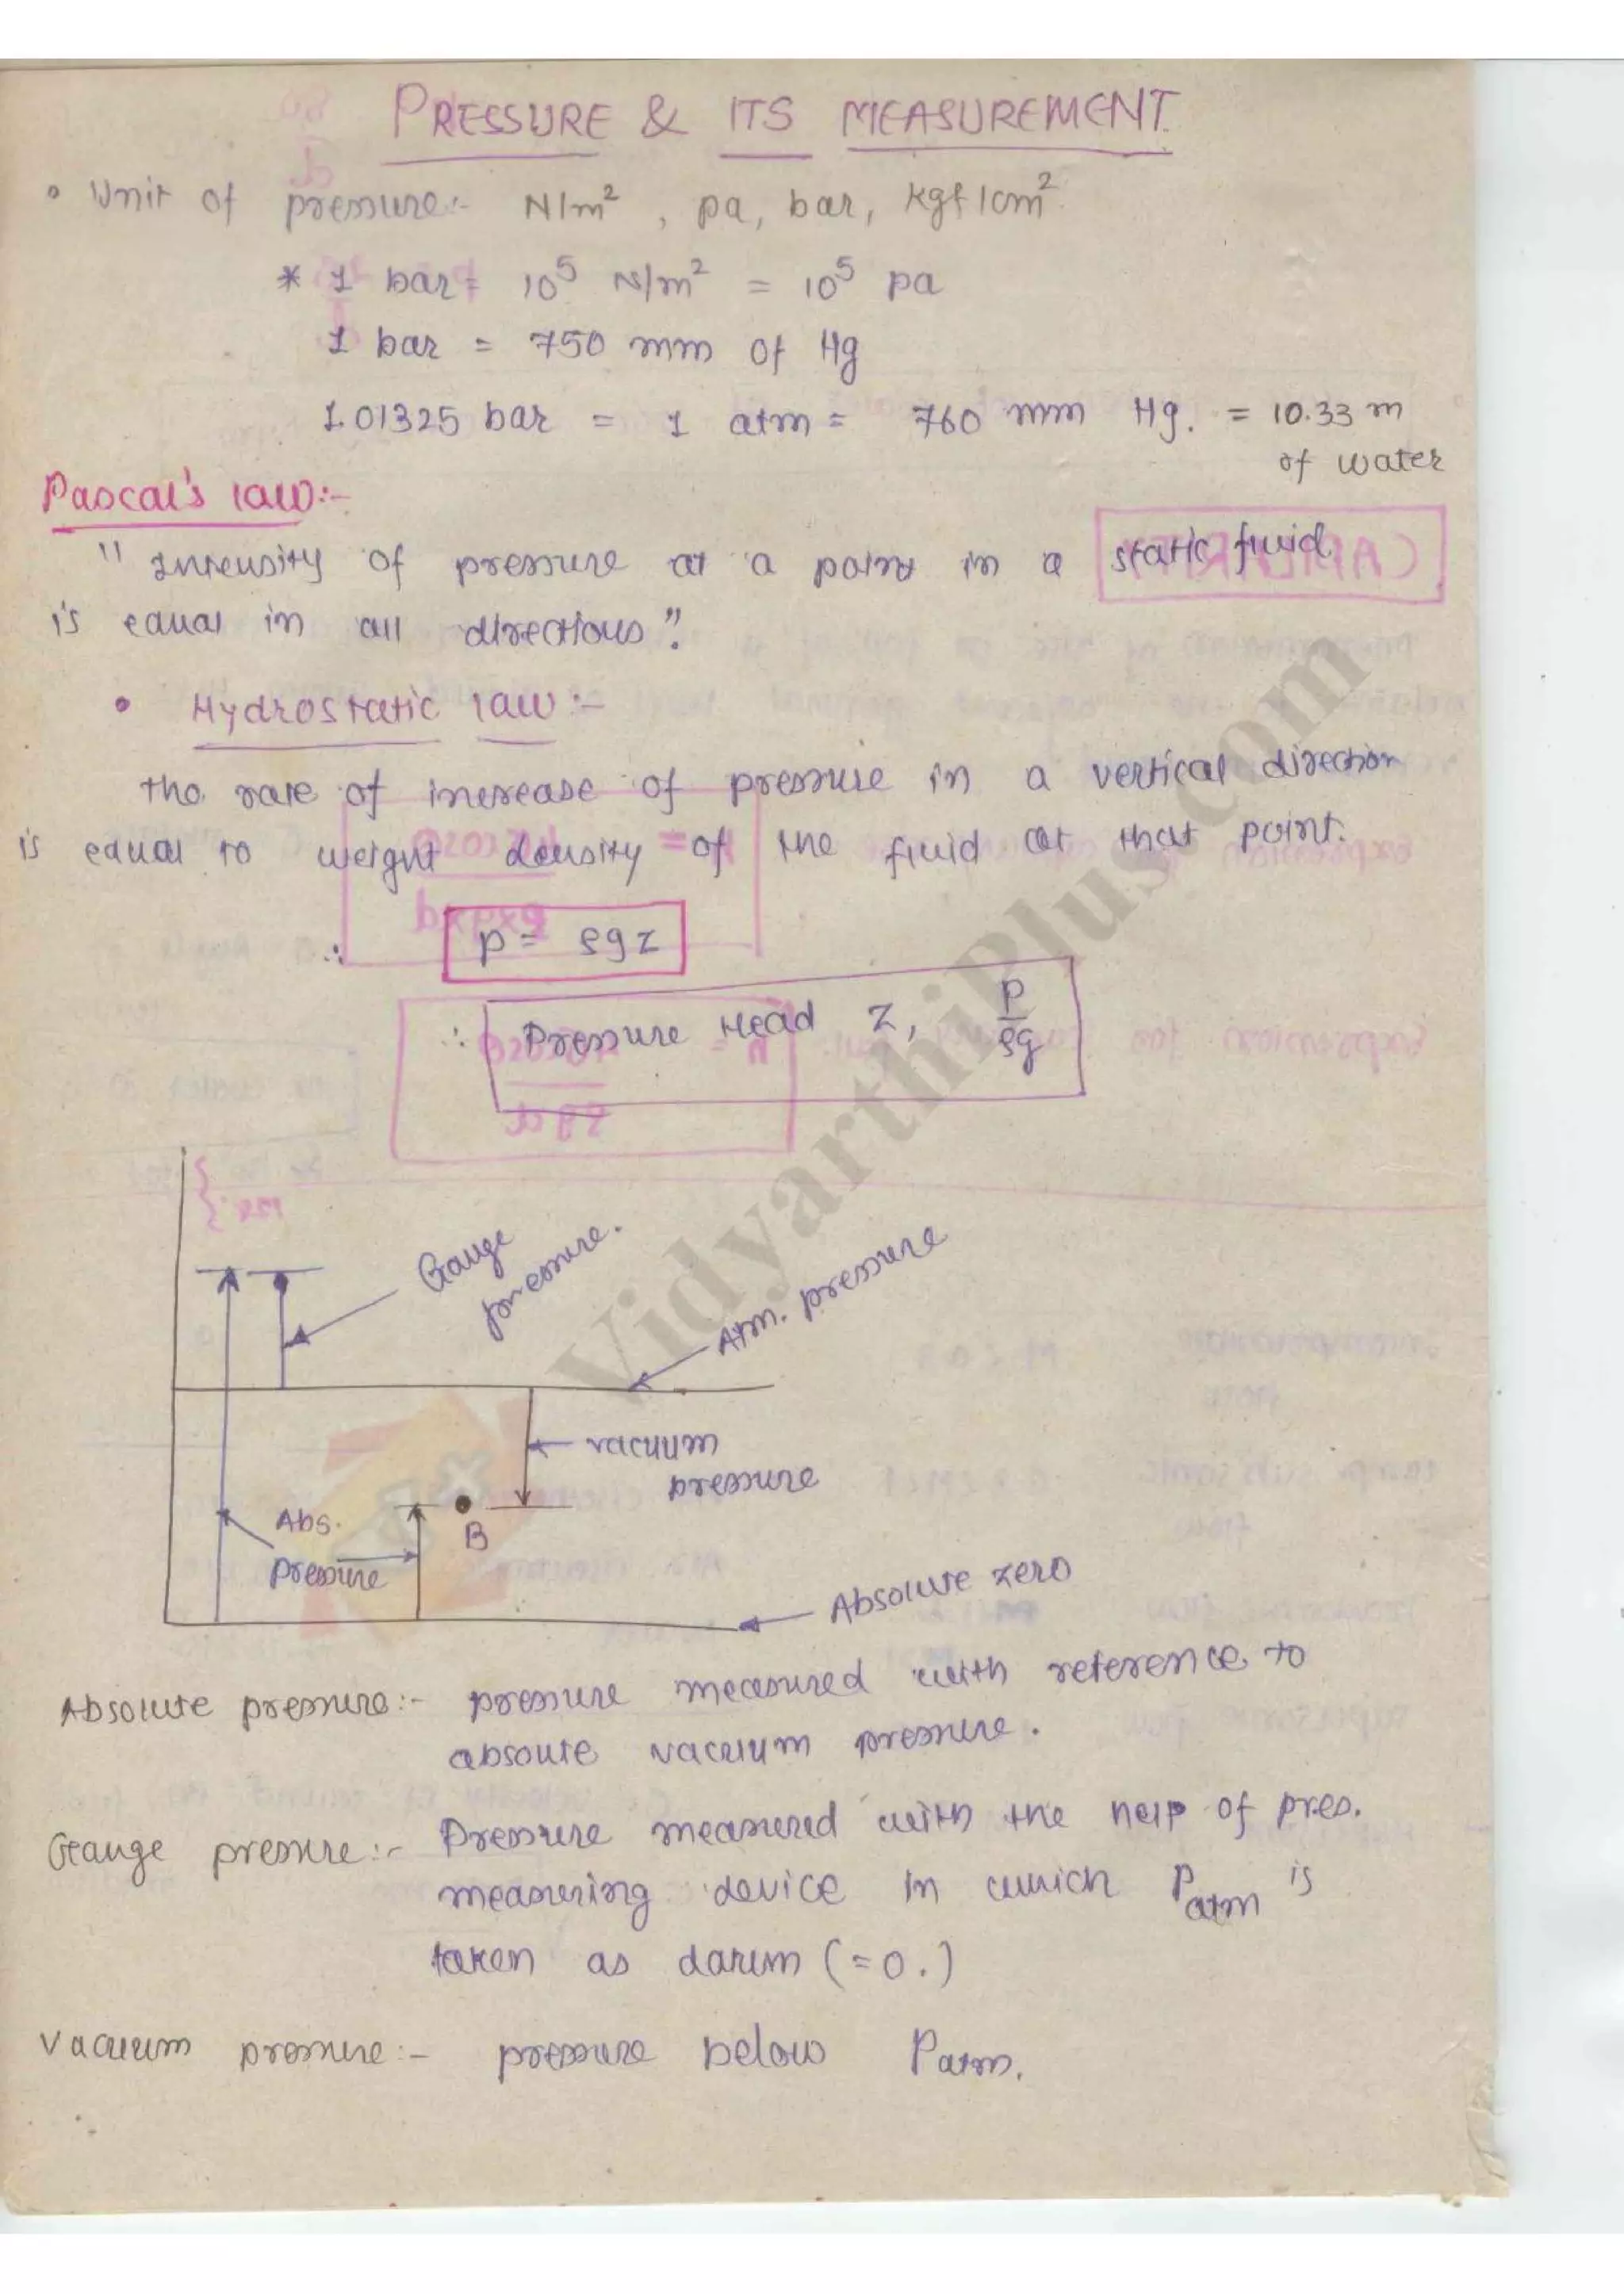 PRESSURE & ITS MEASUREMENT
• Unit of pressure:- N/m², pa, bar, kgf/cm²
* 1 bar = 10⁵ N/m² = 10⁵ pa
1 bar = 750 mm of Hg
1.01325 bar = 1 atm = 760 mm Hg. = 10.33 m
of water
Pascal's law:-
"Intensity of pressure at a point in a static fluid
is equal in all directions".
• Hydrostatic law:-
The rate of increase of pressure in a vertical direction
is equal to weight density of the fluid at that point.
∴ p = ρgz
∴ Pressure Head z, P/ρg
Gauge
pressure.
Atm. pressure
vacuum
pressure
Abs.
pressure
B
Absolute zero
Absolute pressure:- pressure measured with reference to
absoute vacuum pressure.
Gauge pressure:- Pressure measured with the help of pres.
measuring device in which Patm is
taken as datum (=0.)
Vacuum pressure:- pressure below Patm.
VidyarthiPlus.com